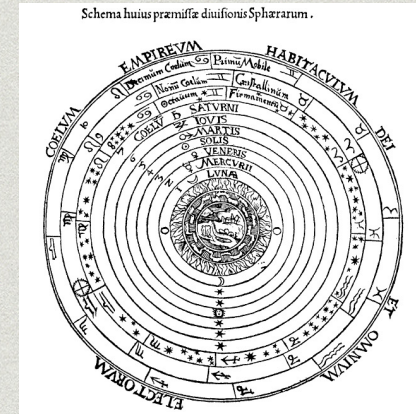 Schema huius præmissæ diuisionis Sphærarum .
COELVM EMPIREVM HABITACVLVM DEI ET OMNIVM ELECTORVM
Decimum Coelum Primũ Mobile
Nonũ Coelum Cristallinũ
Octauum Firmamentũ
COELV SATVRNI
IOVIS
MARTIS
SOLIS
VENERIS
MERCVRII
LVNÆ